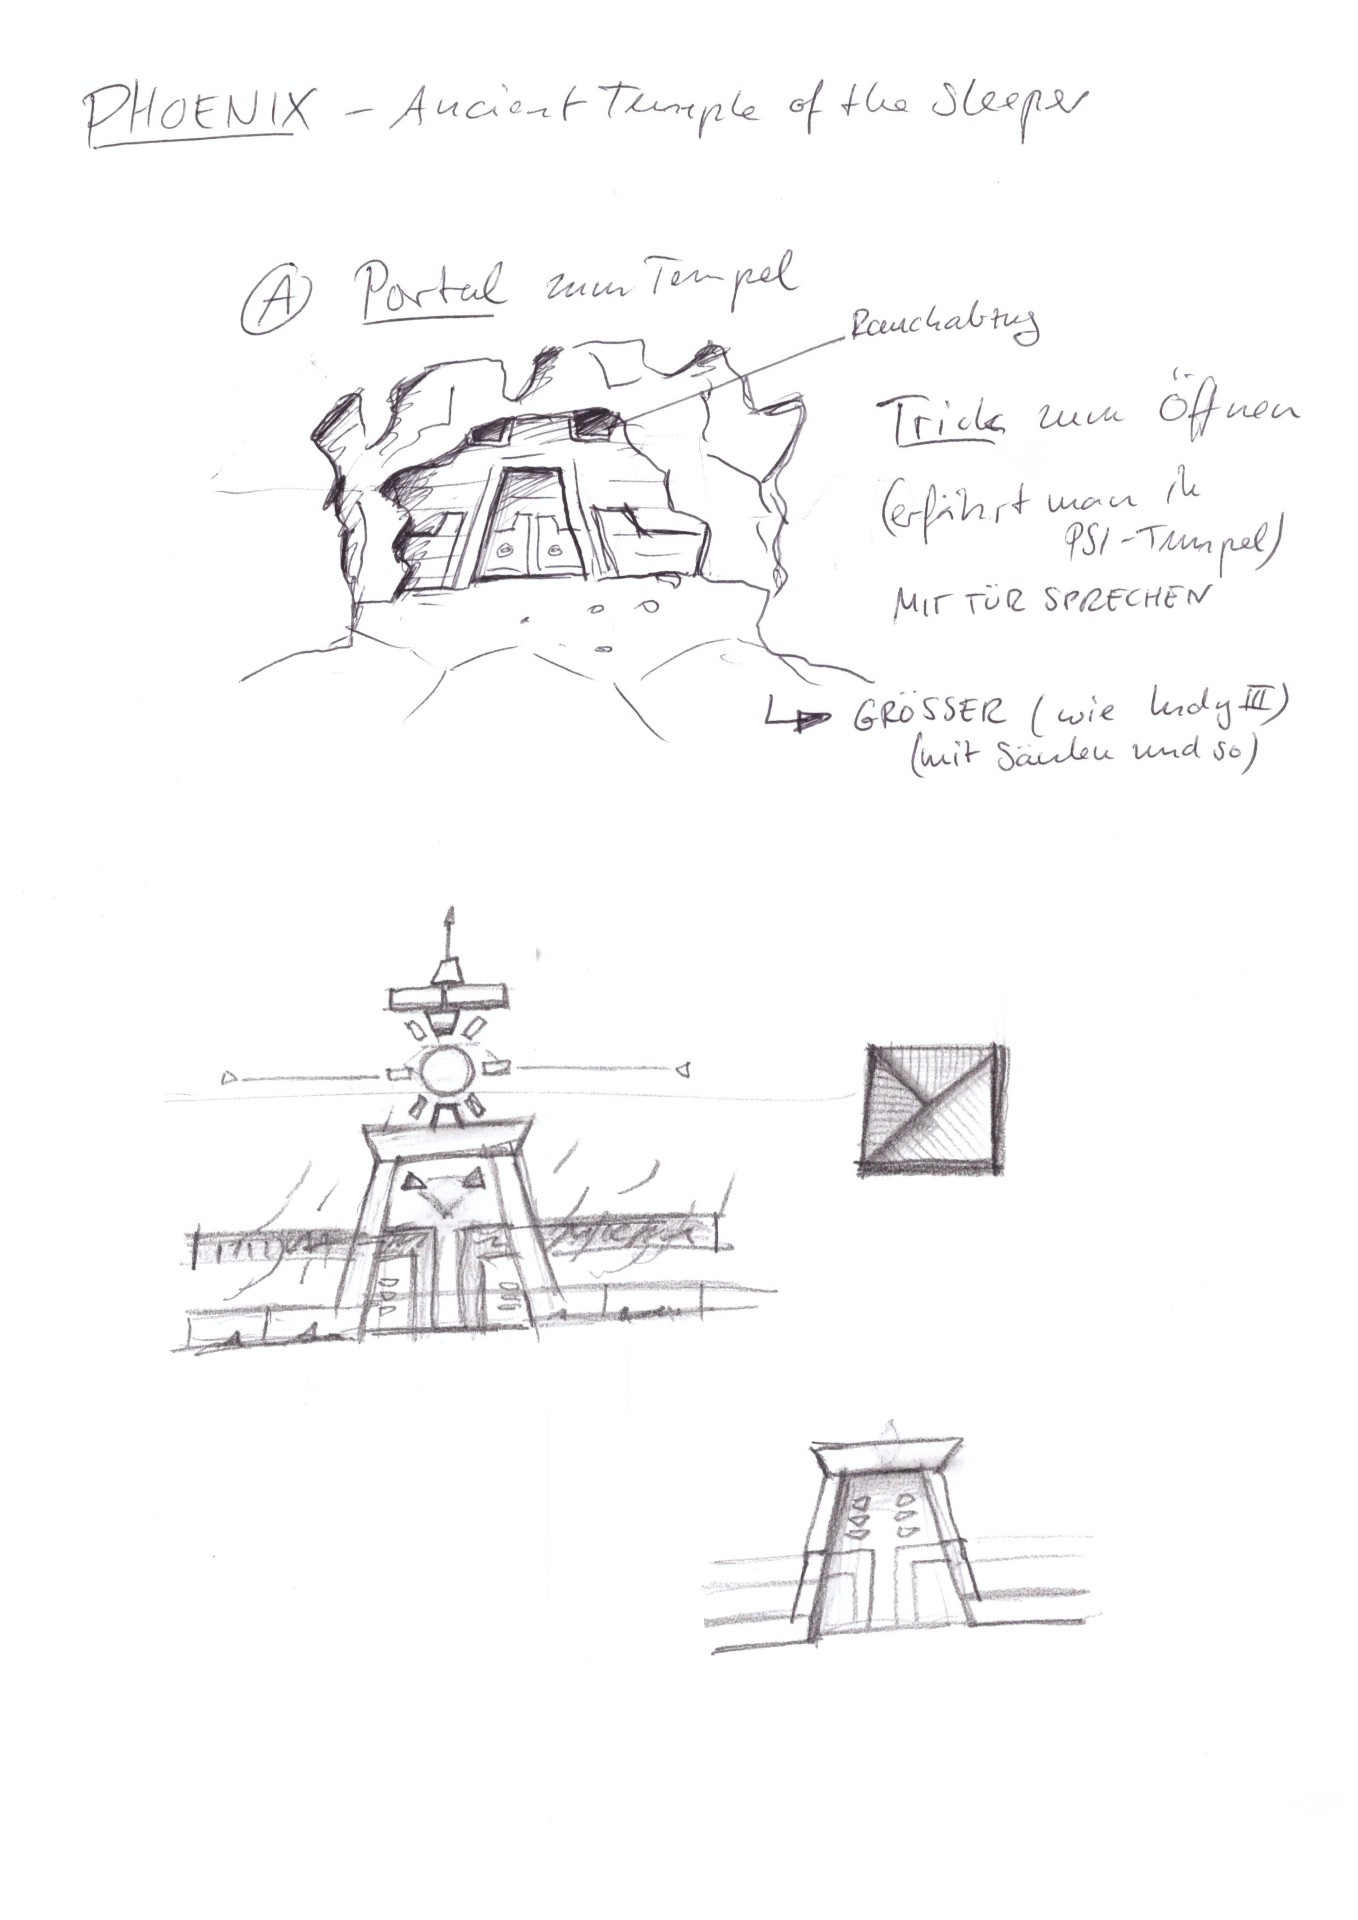 PHOENIX – Ancient Temple of the Sleeper
A Portal zum Tempel
Rauchabzug
Trick zum Öffnen
(erfährt man in
PSI-Tempel)
MIT TÜR SPRECHEN
GRÖSSER (wie Indy III)
(mit Säulen und so)